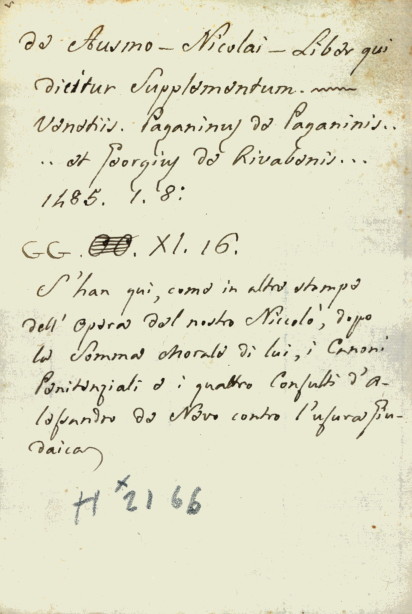 de Ausmo - Nicolai - Liber qui
dicitur Supplementum.
Venetiis. Paganinus de Paganinis..
.. et Georgius de Rivabenis...
1485. 1. 8:
GG. . XI. 16.
S'han qui, come in altre stampe
dell' Opera del nostro Niccolò, dopo
la Somma morale di lui, i Canoni
Penitenziali e i quattro Consulti d'A-
lessandro de Nevo contro l'usura Giu-
daica
H x 2166